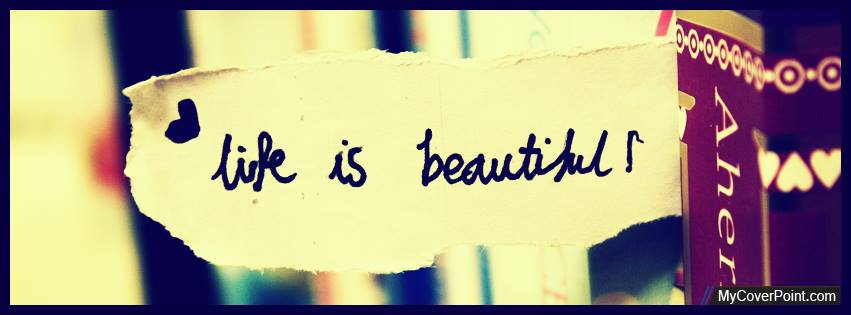 life is beautiful!
Aher
MyCoverPoint.com